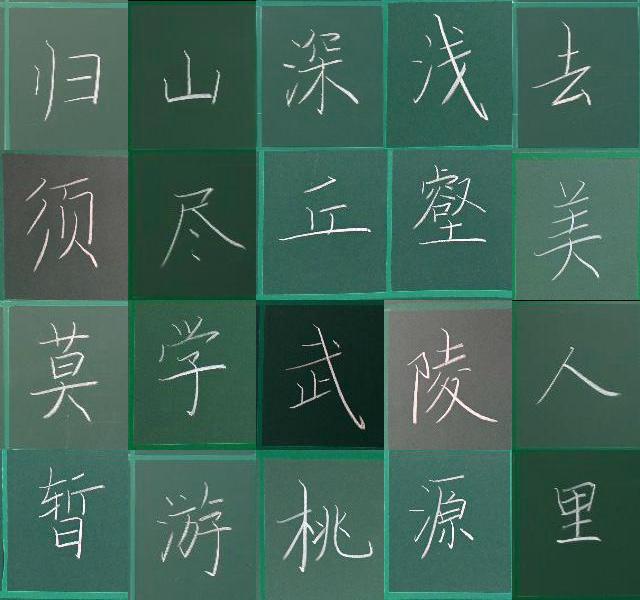 归山深浅去
须尽丘壑美
莫学武陵人
暂游桃源里